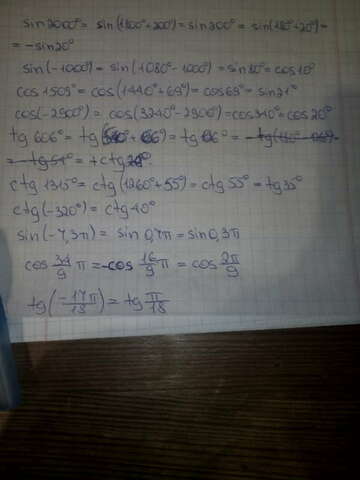 sin2000° = sin(1800°+200°) = sin200° = sin(180°+20°) =
= -sin20°
sin(-1000°) = sin(1080°-1000°) = sin80° = cos10°
cos1509° = cos(1440°+69°) = cos69° = sin21°
cos(-2900°) = cos(3240°-2900°) = cos340° = cos20°
tg 606° = tg(540°+66°) = tg66° =
= +ctg24°
ctg1315° = ctg(1260°+55°) = ctg55° = tg35°
ctg(-320°) = ctg40°
sin(-7,3π) = sin0,7π = sin0,3π
cos 34/9 π = -cos 16/9 π = cos 2π/9
tg(-17π/18) = tg π/18